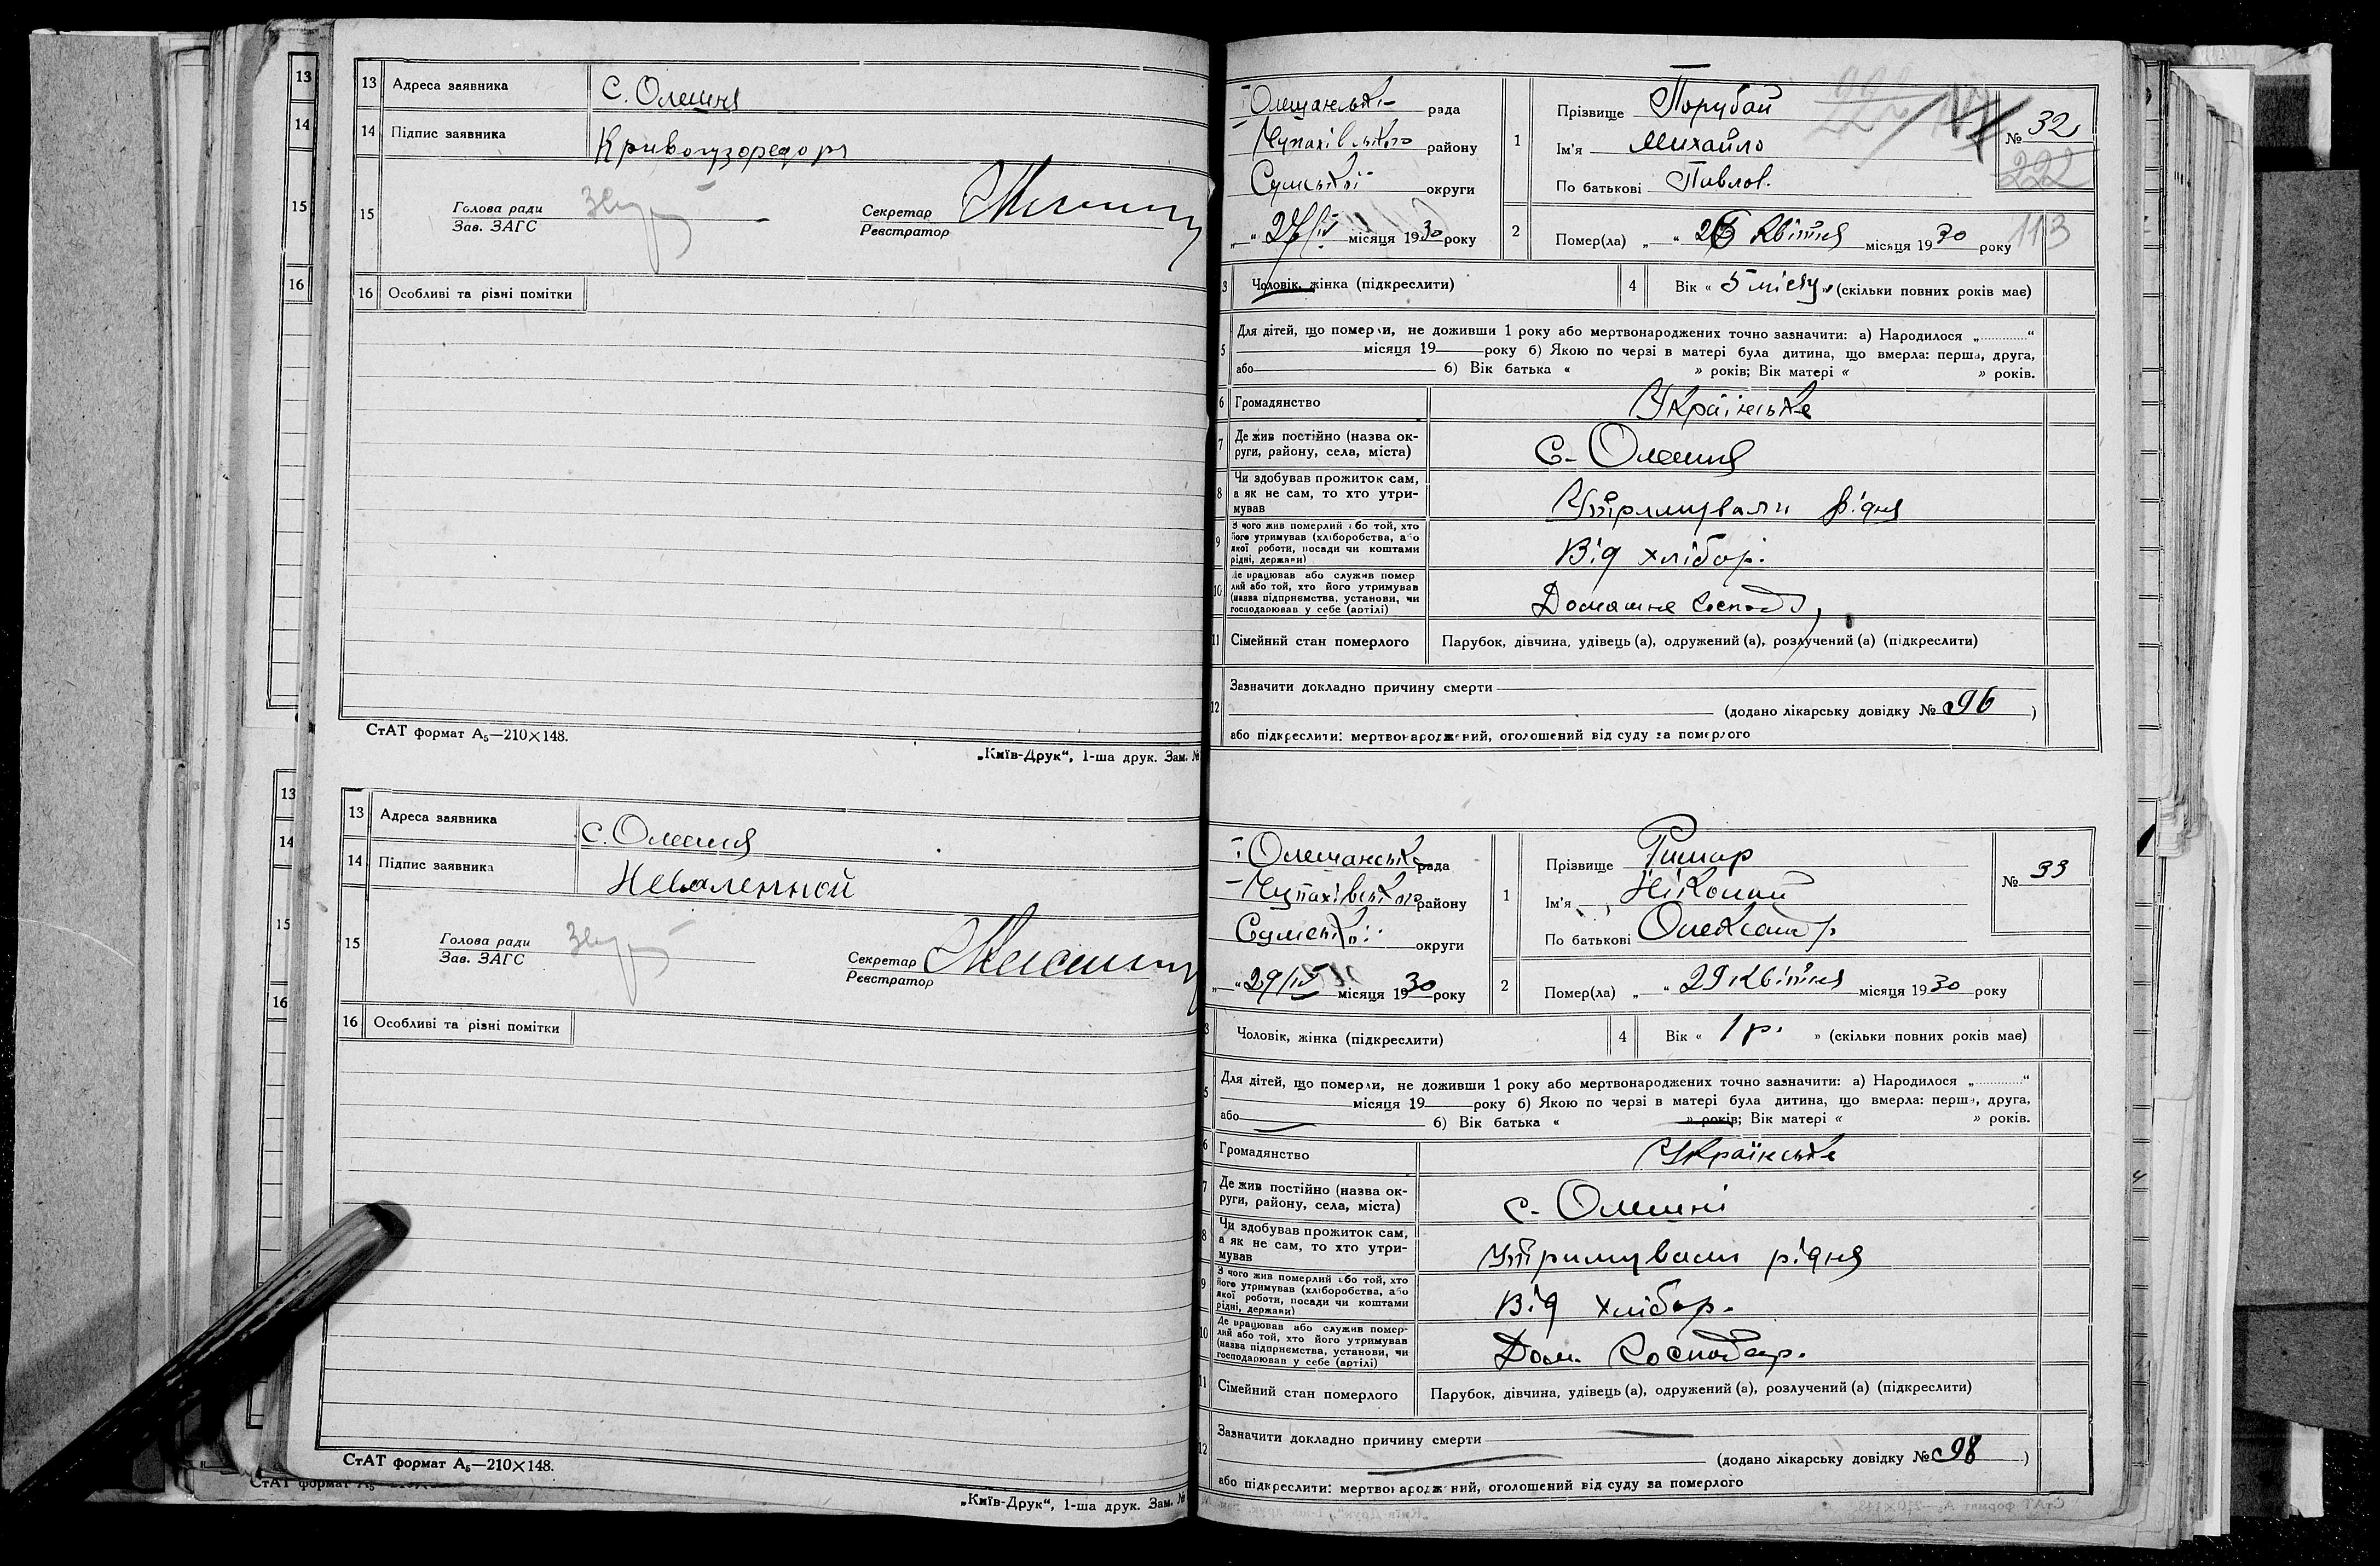 13 Адреса заявника С. Олешня
14 Підпис заявника
15 Голова ради Секретар
Зав. ЗАГС Реєстратор
16 Особливі та різні помітки
СтАТ формат А₅—210×148.
„Київ-Друк“, 1-ша друк. Зам. №
13 Адреса заявника с. Олешня
14 Підпис заявника
15 Голова ради Секретар
Зав. ЗАГС Реєстратор
16 Особливі та різні помітки
СтАТ формат А₅—210×148.
„Київ-Друк“, 1-ша друк. Зам. №
Олешанська рада
Чупахівського району
Сумської округи
„—“ 27/IV місяця 1930 року
1 Прізвище Порубай
Ім'я Михайло
По батькові Павлов.
№ 32
222
2 Помер(ла) „—“ 26 Квітня місяця 1930 року 113
3 Чоловік, жінка (підкреслити)
4 Вік « 5 місяц » (скільки повних років має)
5 Для дітей, що померли, не доживши 1 року або мертвонароджених точно зазначити: а) Народилося „............“
місяця 19 року б) Якою по черзі в матері була дитина, що вмерла: перша, друга,
або б) Вік батька « » років; Вік матері « » років.
6 Громадянство Українське
7 Де жив постійно (назва ок-
руги, району, села, міста) с- Олешня
8 Чи здобував прожиток сам,
а як не сам, то хто утри-
мував Утримували рідня
9 З чого жив померлий або той, хто
його утримував (хліборобства, або
якої роботи, посади чи коштами
рідні, держави) Від хлібор.
10 Де працював або служив помер
лий або той, хто його утримував
(назва підприємства, установи, чи
господарював у себе (артілі) Домашнє Господ,
11 Сімейний стан померлого Парубок, дівчина, удівець (а), одружений (а), розлучений (а) (підкреслити)
12 Зазначити докладно причину смерти
(додано лікарську довідку № 96 )
або підкреслити: мертвонароджений, оголошений від суду за померлого
Олешанська рада
Чупахівського району
Сумської округи
„—“ 29/IV місяця 1930 року
1 Прізвище Римар
Ім'я Ніколай
По батькові Олександр
№ 33
2 Помер(ла) „ “ 29 Квітня місяця 1930 року
3 Чоловік, жінка (підкреслити)
4 Вік « 1 р. » (скільки повних років має)
5 Для дітей, що померли, не доживши 1 року або мертвонароджених точно зазначити: а) Народилося „............“
місяця 19 року б) Якою по черзі в матері була дитина, що вмерла: перша, друга,
або б) Вік батька « » років; Вік матері « » років.
6 Громадянство Українське
7 Де жив постійно (назва ок-
руги, району, села, міста) с- Олешні
8 Чи здобував прожиток сам,
а як не сам, то хто утри-
мував Утримували рідня
9 З чого жив померлий або той, хто
його утримував (хліборобства, або
якої роботи, посади чи коштами
рідні, держави) Від хлібор.
10 Де працював або служив помер-
лий або той, хто його утримував
(назва підприємства, установи, чи
господарював у себе (артілі) Дом. Господар.
11 Сімейний стан померлого Парубок, дівчина, удівець (а), одружений (а), розлучений (а) (підкреслити)
12 Зазначити докладно причину смерти
(додано лікарську довідку № 98 )
або підкреслити: мертвонароджений, оголошений від суду за померлого